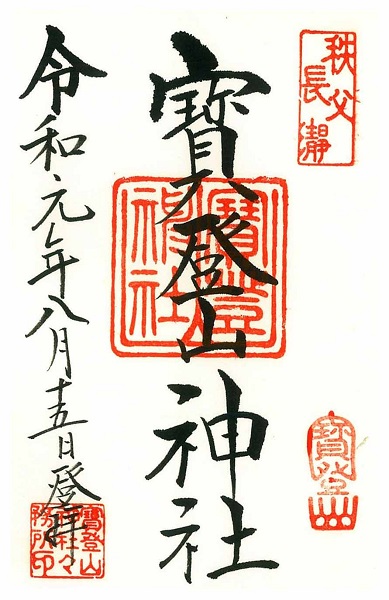 秩父
長瀞
寳登山神社
寳登山
神社
寳登山
令和元年八月十五日登拝
寳登山
神社々
務所印